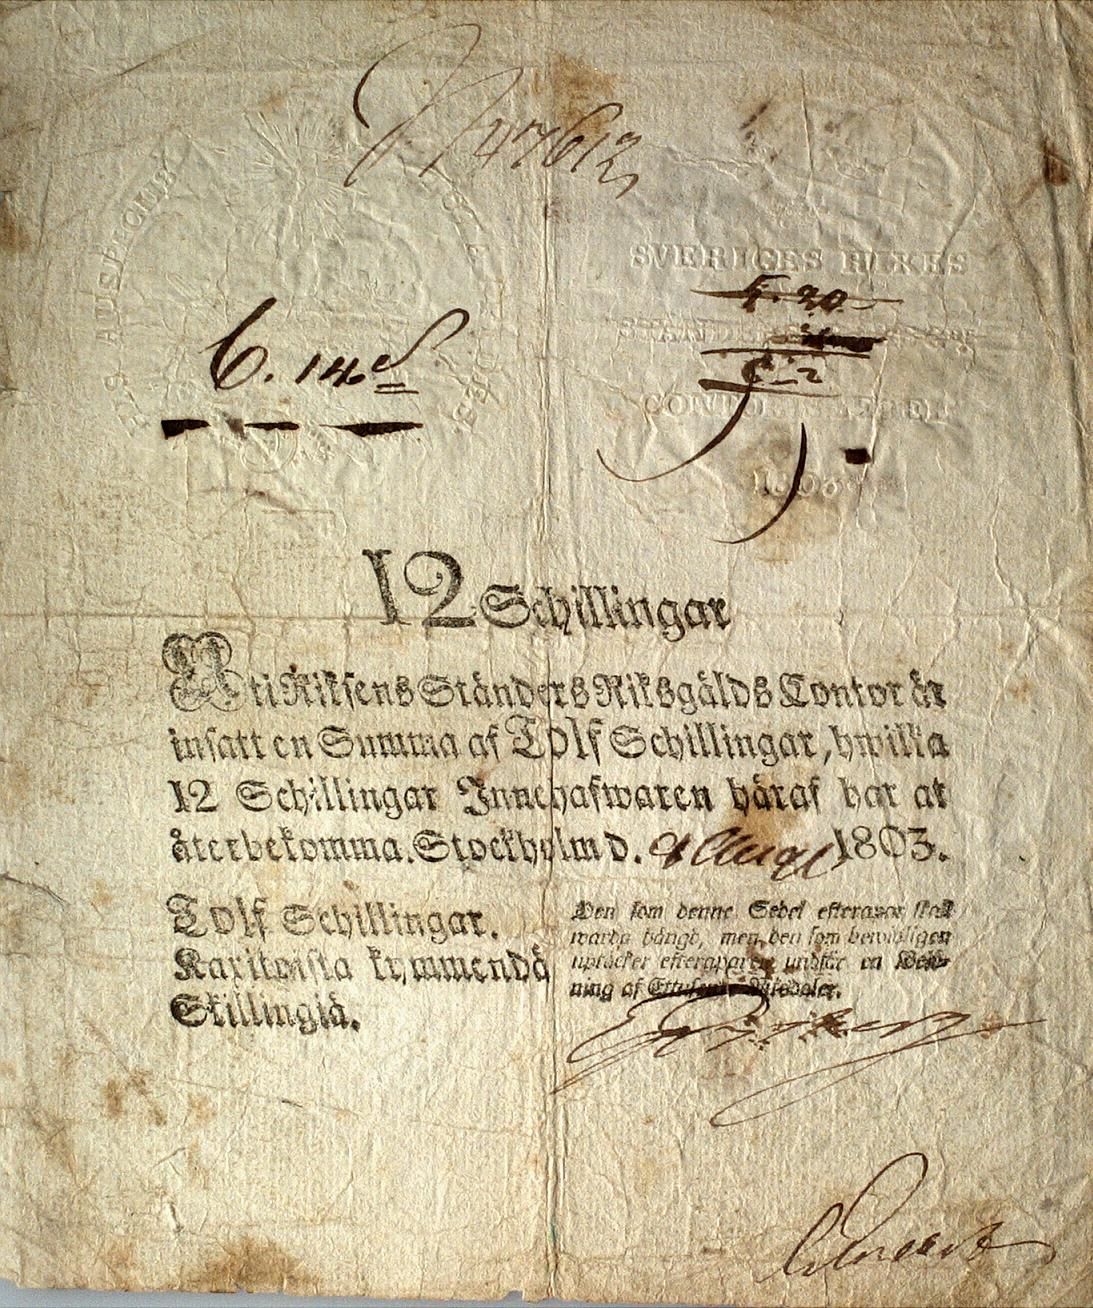 47612
AUSPICIIS
SVERIGES RIKES
6. 14
STÄND
CONTOIRS
12 Schillingar
Uti Riksens Ständers Riksgälds Contor är
insatt en Summa af Tolf Schillingar, hwilka
12 Schillingar Innehafwaren häraf har at
återbekomma. Stockholm d. Aug 1803.
Tolf Schillingar.
Kaxitoista kymmendä
Skillingiä.
Den som denne Sedel efterapar skall
warda hängd, men den som bewisligen
uptäcker efteraparen undfår en Belö-
ning af Ettusend Riksdaler.